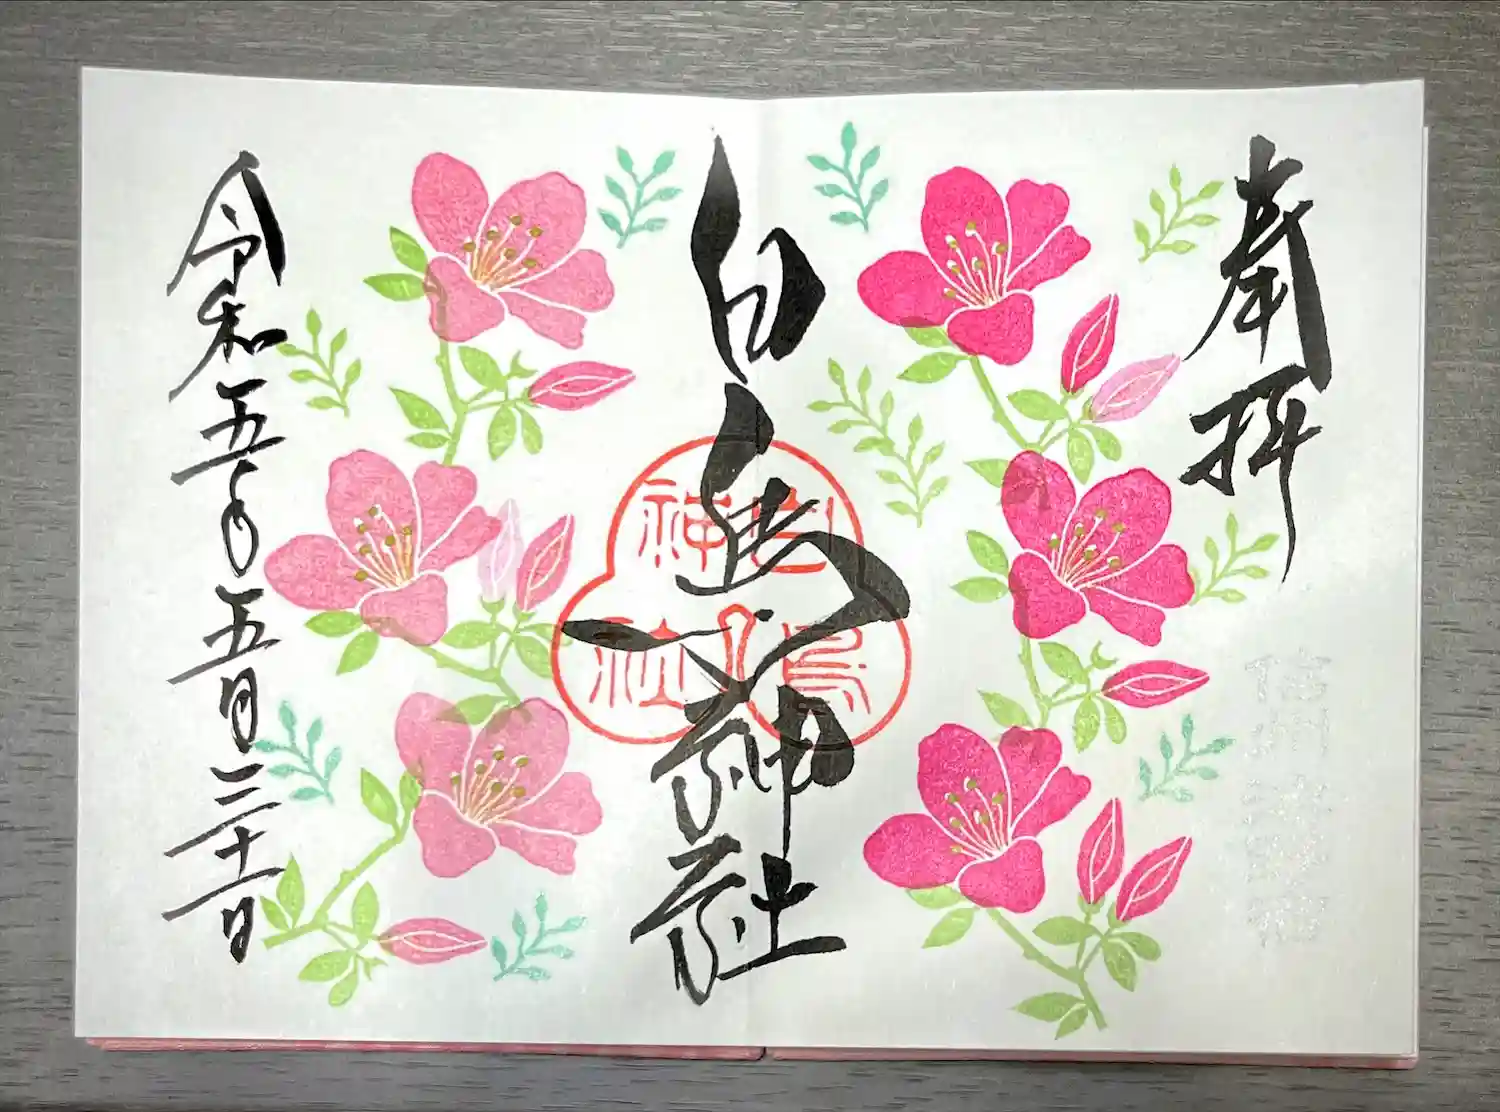 奉拝
信州
白鳥神社
白鳥神社
令和五年五月三十一日